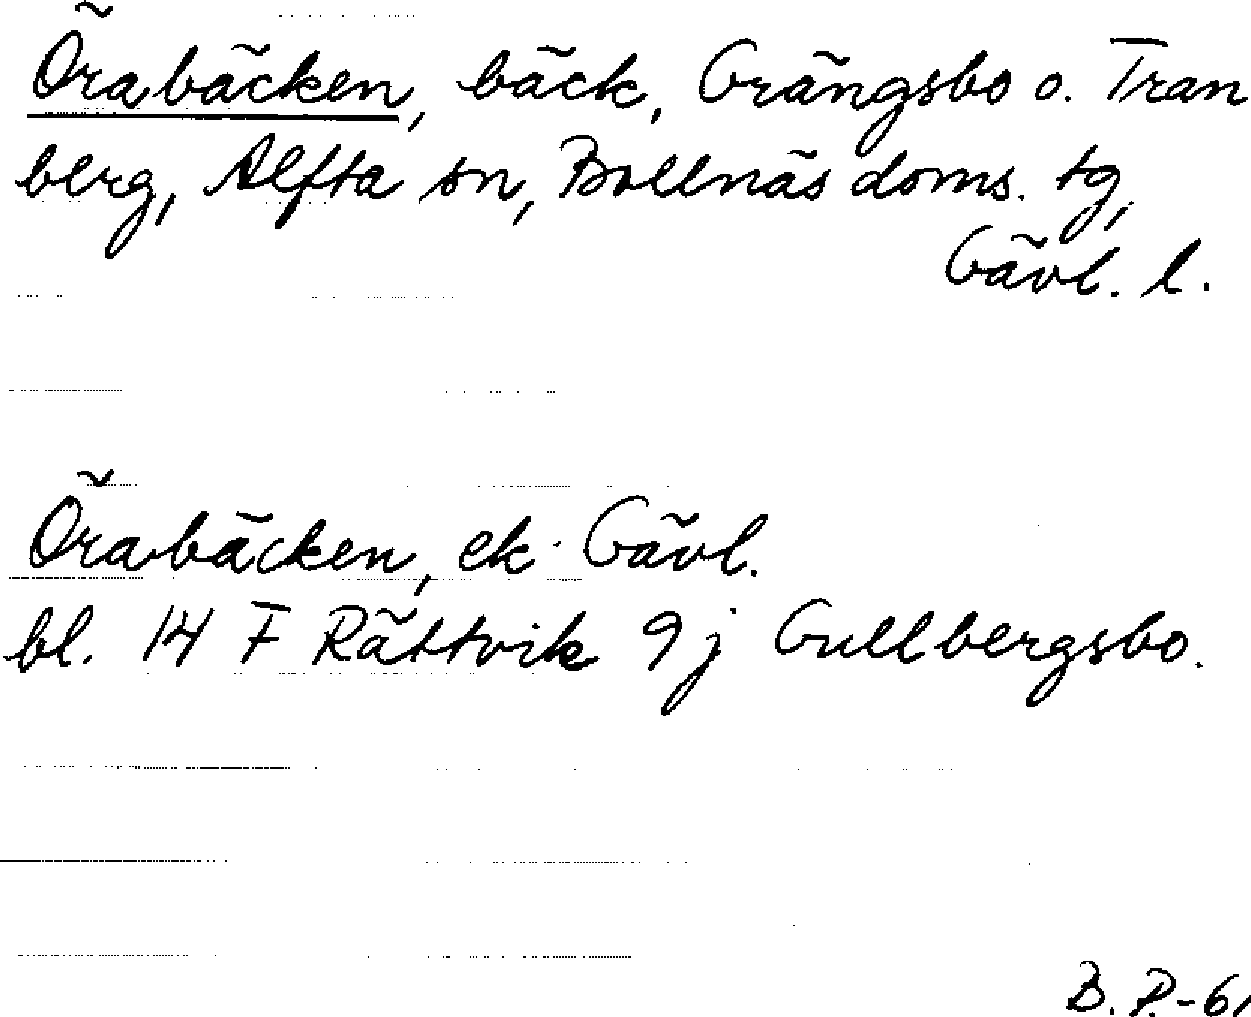 Örabäcken, bäck, Grängsbo o. Tran
berg, Alfta sn, Bollnäs doms. tg,
Gävl. l.
Örabäcken, ek. Gävl.
bl. 14 F Rättvik 9j Gullbergsbo.
B. P.-61